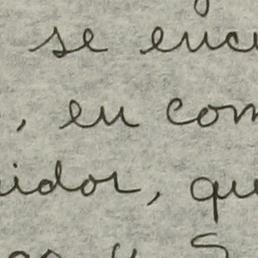 se encu
, en com
uidor, qu